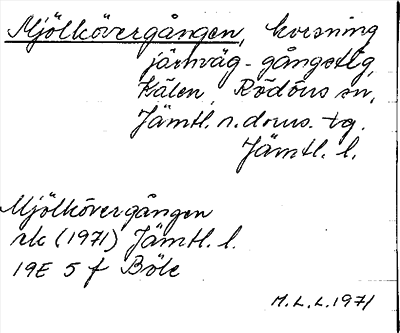 Mjölkövergången, korsning
järnväg - gångstig,
Kälen, Rödöns sn,
Jämtl. n. doms. tg.
Jämtl. l.
Mjölkövergången
rk (1971) Jämtl. l.
19E 5 f Böle
M.L.L. 1971